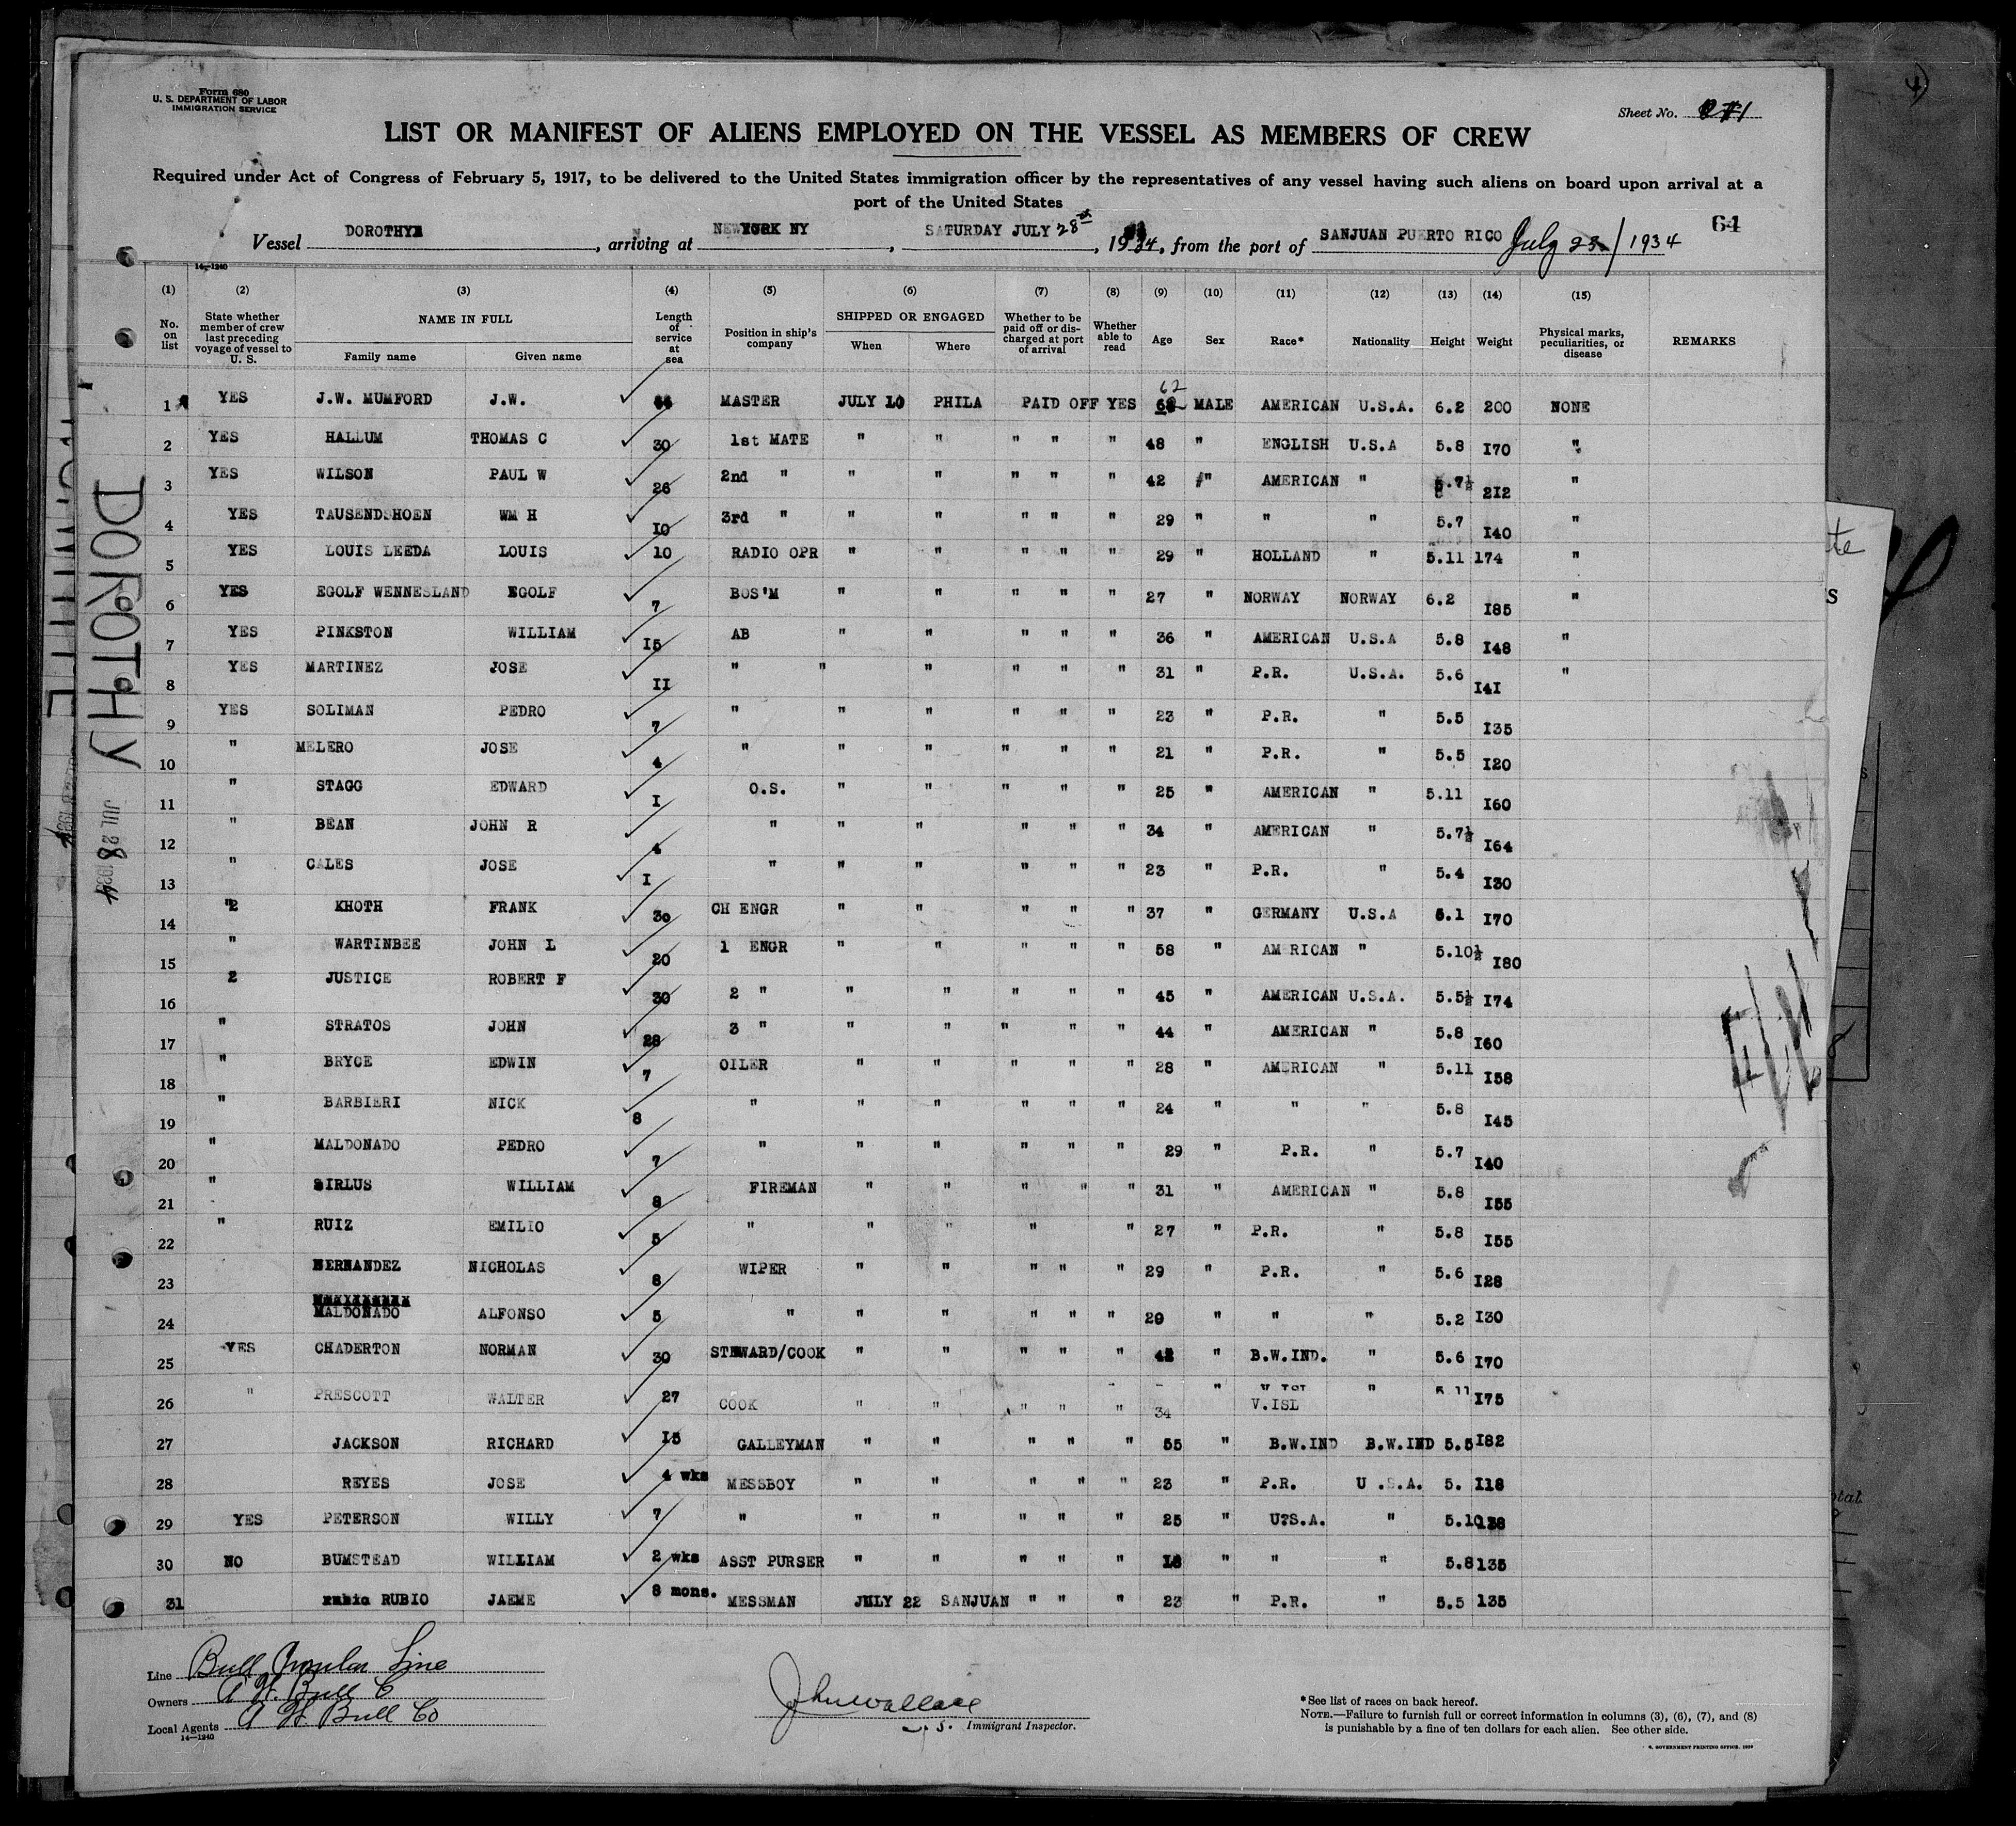 Form 680
U. S. DEPARTMENT OF LABOR
IMMIGRATION SERVICE
4)
Sheet No.
LIST OR MANIFEST OF ALIENS EMPLOYED ON THE VESSEL AS MEMBERS OF CREW
Required under Act of Congress of February 5, 1917, to be delivered to the United States immigration officer by the representatives of any vessel having such aliens on board upon arrival at a
port of the United States
64
Vessel DOROTHY, arriving at NEW YORK NY, SATURDAY JULY 28th, 1934, from the port of SANJUAN PUERTO RICO July 23/1934
14-1240
(1) (2) (3) (4) (5) (6) (7) (8) (9) (10) (11) (12) (13) (14) (15)
No. on list | State whether member of crew last preceding voyage of vessel to U. S. | NAME IN FULL Family name Given name | Length of service at sea | Position in ship's company | SHIPPED OR ENGAGED When Where | Whether to be paid off or discharged at port of arrival | Whether able to read | Age | Sex | Race* | Nationality | Height | Weight | Physical marks, peculiarities, or disease | REMARKS
1 YES J.W. MUMFORD J.W. MASTER JULY 10 PHILA PAID OFF YES 62 MALE AMERICAN U.S.A. 6.2 200 NONE
2 YES HALLUM THOMAS C 30 1st MATE " " " " " 48 " ENGLISH U.S.A 5.8 I70 "
3 YES WILSON PAUL W 26 2nd " " " " " " 42 " AMERICAN " 5.7½ 2I2 "
4 YES TAUSENDSHOEN WM H IO 3rd " " " " " " 29 " " " 5.7 I40 "
5 YES LOUIS LEEDA LOUIS 10 RADIO OPR " " " " " 29 " HOLLAND " 5.11 174 "
6 YES EGOLF WENNESLAND EGOLF 7 BOS'M " " " " " 27 " NORWAY NORWAY 6.2 I85 "
7 YES PINKSTON WILLIAM I5 AB " " " " " 36 " AMERICAN U.S.A 5.8 I48 "
8 YES MARTINEZ JOSE II " " " " " " 31 " P.R. U.S.A. 5.6 I4I "
9 YES SOLIMAN PEDRO 7 " " " " " " 23 " P.R. " 5.5 I35
10 " MELERO JOSE 4 " " " " " " 21 " P.R. " 5.5 I20
11 " STAGG EDWARD I O.S. " " " " " 25 " AMERICAN " 5.11 I60
12 " BEAN JOHN R 4 " " " " " " 34 " AMERICAN " 5.7½ I64
13 " CALES JOSE I " " " " " " 23 " P.R. " 5.4 I30
14 " KHOTH FRANK 30 CH ENGR " " " " " 37 " GERMANY U.S.A 6.1 I70
15 " WARTINBEE JOHN L 20 1 ENGR " " " " " 58 " AMERICAN " 5.10½ I80
16 2 JUSTICE ROBERT F 30 2 " " " " " " 45 " AMERICAN U.S.A. 5.5½ I74
17 " STRATOS JOHN 28 3 " " " " " " 44 " AMERICAN " 5.8 I60
18 " BRYCE EDWIN 7 OILER " " " " " 28 " AMERICAN " 5.11 I58
19 " BARBIERI NICK 8 " " " " " " 24 " " " 5.8 I45
20 " MALDONADO PEDRO 7 " " " " " " 29 " P.R. " 5.7 I40
21 " SIRLUS WILLIAM 8 FIREMAN " " " " " 31 " AMERICAN " 5.8 I55
22 " RUIZ EMILIO 5 " " " " " 27 " P.R. " 5.8 I55
23 HERNANDEZ NICHOLAS 8 WIPER " " " " " 29 " P.R. " 5.6 I28
24 MALDONADO ALFONSO 5 " " " " " " 29 " " " 5.2 I30
25 YES CHADERTON NORMAN 30 STEWARD/COOK " " " " " 42 " B.W.IND. " 5.6 I70
26 " PRESCOTT WALTER 27 COOK " " " " " 34 " V.ISL " 5.11 I75
27 JACKSON RICHARD I5 GALLEYMAN " " " " " 55 " B.W.IND B.W.IND 5.5 I82
28 REYES JOSE 4 wks MESSBOY " " " " " 23 " P.R. U.S.A. 5. I18
29 YES PETERSON WILLY 7 " " " " " " 25 " U.S.A. " 5.10 138
30 NO BUMSTEAD WILLIAM 2 wks ASST PURSER " " " " " 18 " " " 5.8 135
31 RUBIO JAEME 8 mons. MESSMAN JULY 22 SANJUAN " " " 23 " P.R. " 5.5 135
DOROTHY
JUL 28 1934
Line Bull Insular Line
Owners A H. Bull C
Local Agents A H. Bull Co
14—1240
John Wallace
U. S. Immigrant Inspector.
*See list of races on back hereof.
NOTE.—Failure to furnish full or correct information in columns (3), (6), (7), and (8)
is punishable by a fine of ten dollars for each alien. See other side.
U. S. GOVERNMENT PRINTING OFFICE: 1929